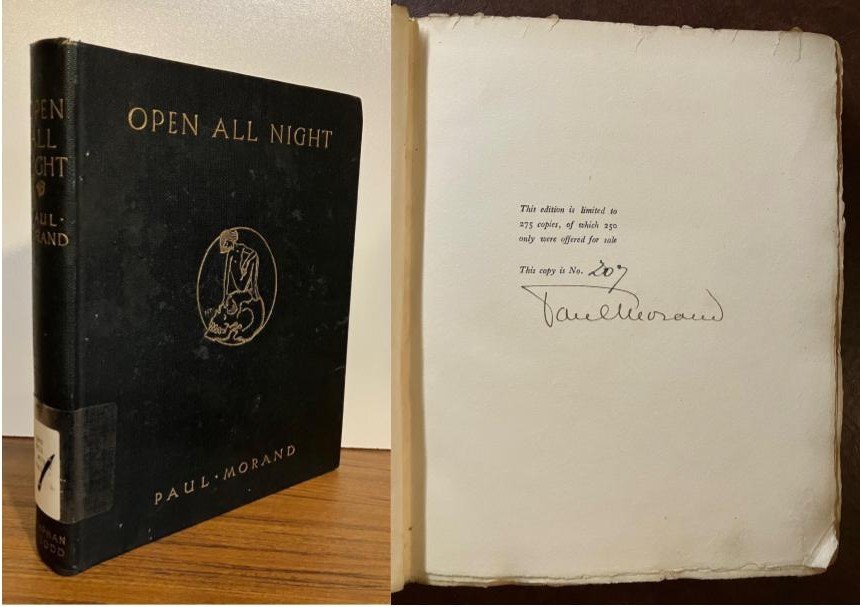 OPEN
ALL
NIGHT
PAUL·
MORAND
OPEN ALL NIGHT
PAUL·MORAND
This edition is limited to
275 copies, of which 250
only were offered for sale
This copy is No. 207
Paul Morand